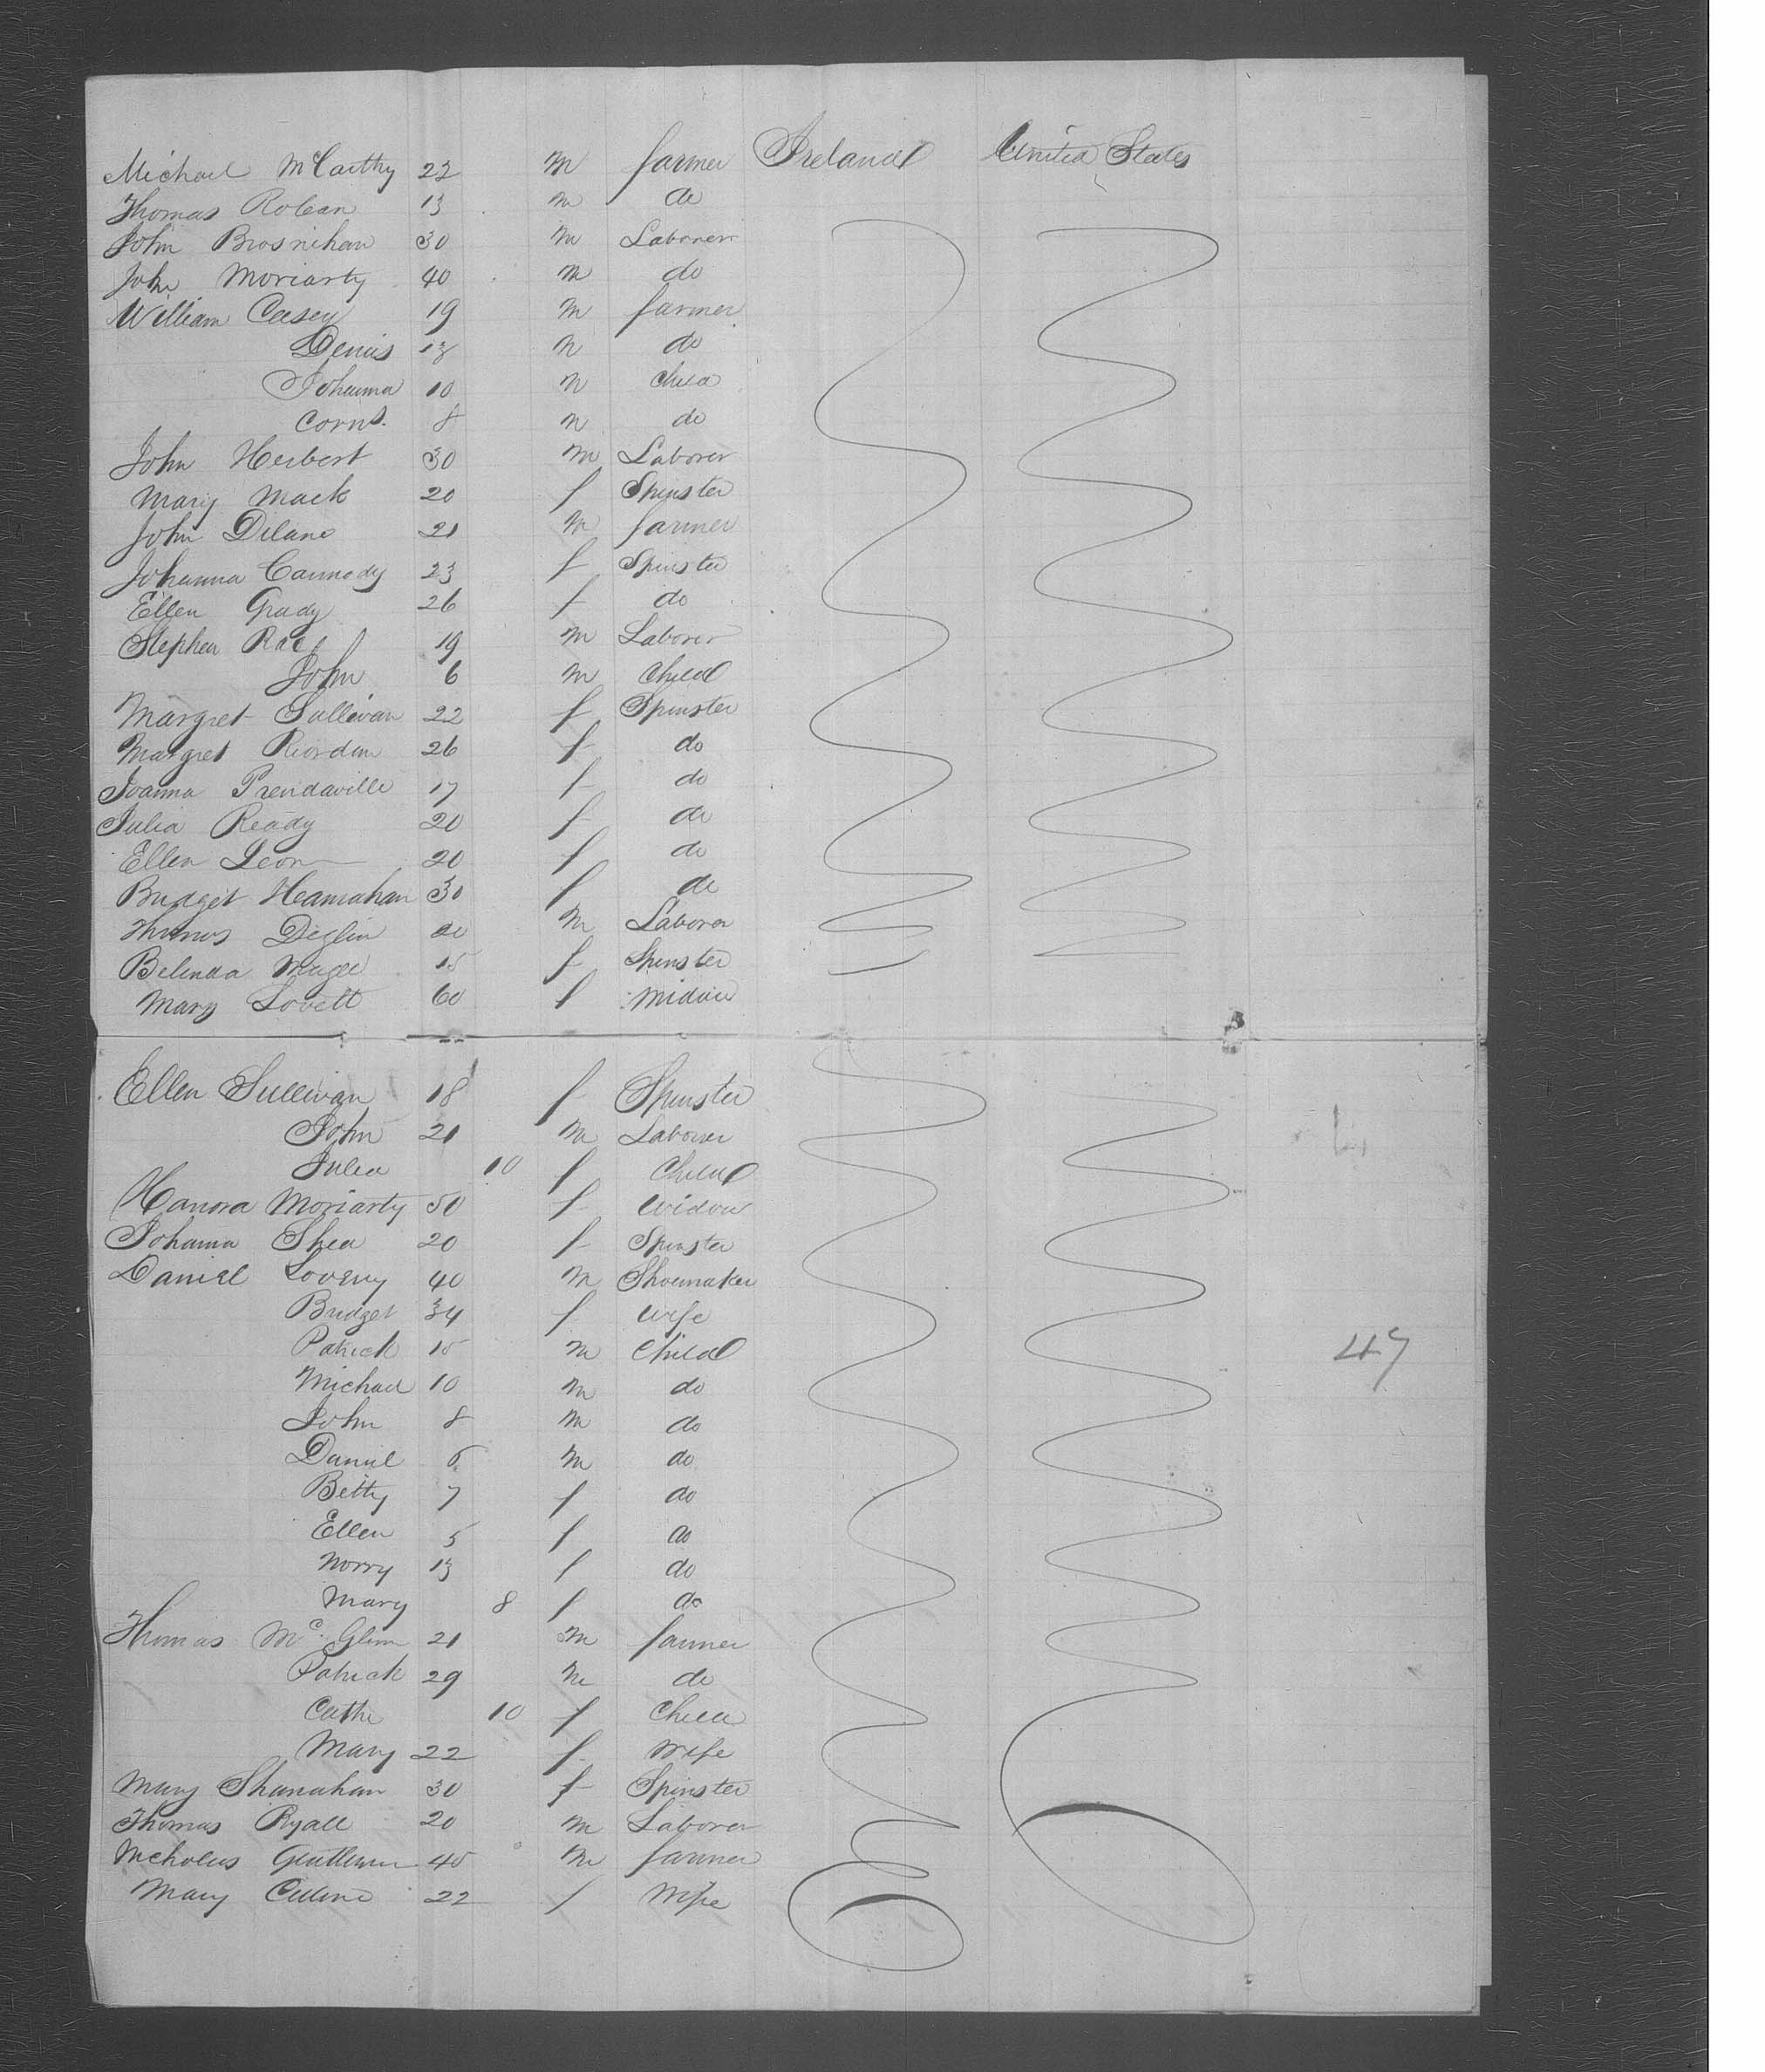 Michael McCarthy 22 m farmer Ireland United States
Thomas Rolean 13 m do
John Brosnihan 30 m Laborer
John Moriarty 40 m do
William Casey 19 m farmer
Denis 13 m do
Johanna 10 m Child
Corns. 8 m do
John Herbert 30 m Laborer
Mary Mack 20 f Spinster
John Dilane 21 m farmer
Johanna Cannody 23 f Spinster
Ellen Grady 26 f do
Stephen Rae 19 m Laborer
John 6 m Child
Margret Sullivan 22 f Spinster
Margret Riordan 26 f do
Joanna Prendaville 17 f do
Julia Ready 20 f do
Ellen Leon 20 f do
Bridget Hannahan 30 f do
Thomas Deglin 20 m Laborer
Belinda Magee 15 f Spinster
Mary Lovett 60 f Widow
Ellen Sullivan 18 f Spinster
John 21 m Laborer
Julia 10 f Child
Hanora Moriarty 50 f Widow
Johanna Shea 20 f Spinster
Daniel Loveny 40 m Shoemaker
Bridget 34 f wife
Patrick 15 m Child 47
Michael 10 m do
John 8 m do
Daniel 6 m do
Betty 7 f do
Ellen 5 f do
Norry 13 f do
Mary 8 f do
Thomas Mc Glinn 21 m farmer
Patrick 29 m do
Cathe 10 f Child
Mary 22 f Wife
Mary Shanahan 30 f Spinster
Thomas Ryall 20 m Laborer
Nicholus Gentleman 45 m farmer
Mary Culine 22 f Wife